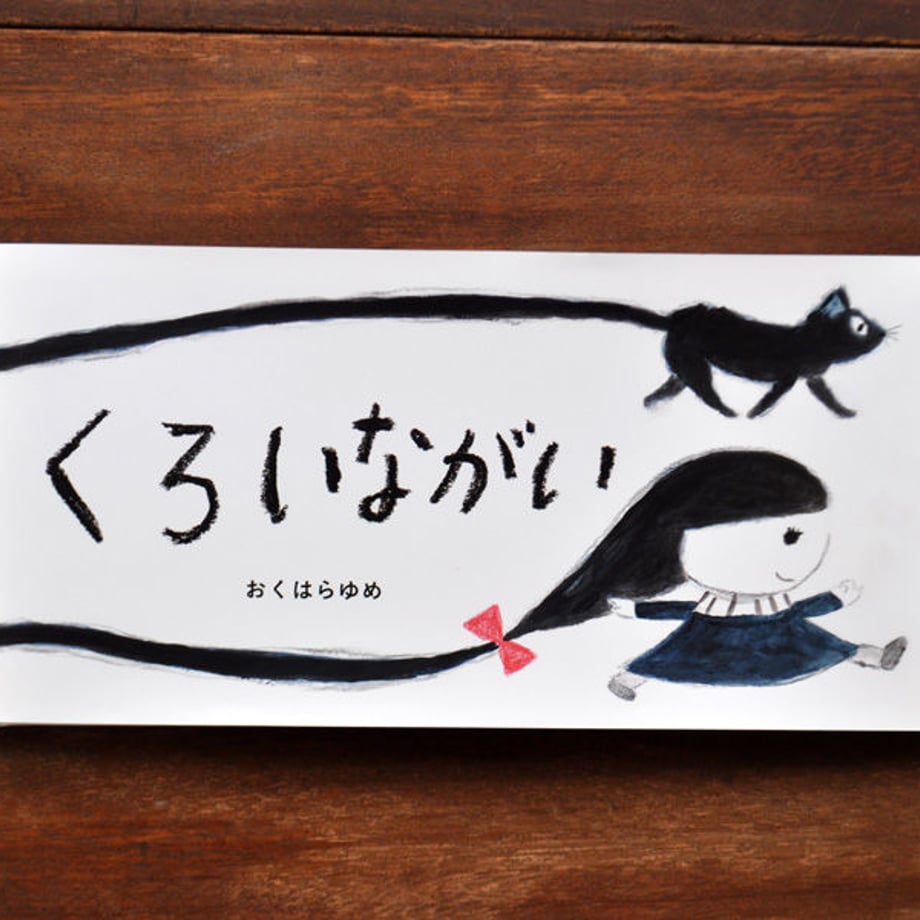 くろいながい
おくはらゆめ